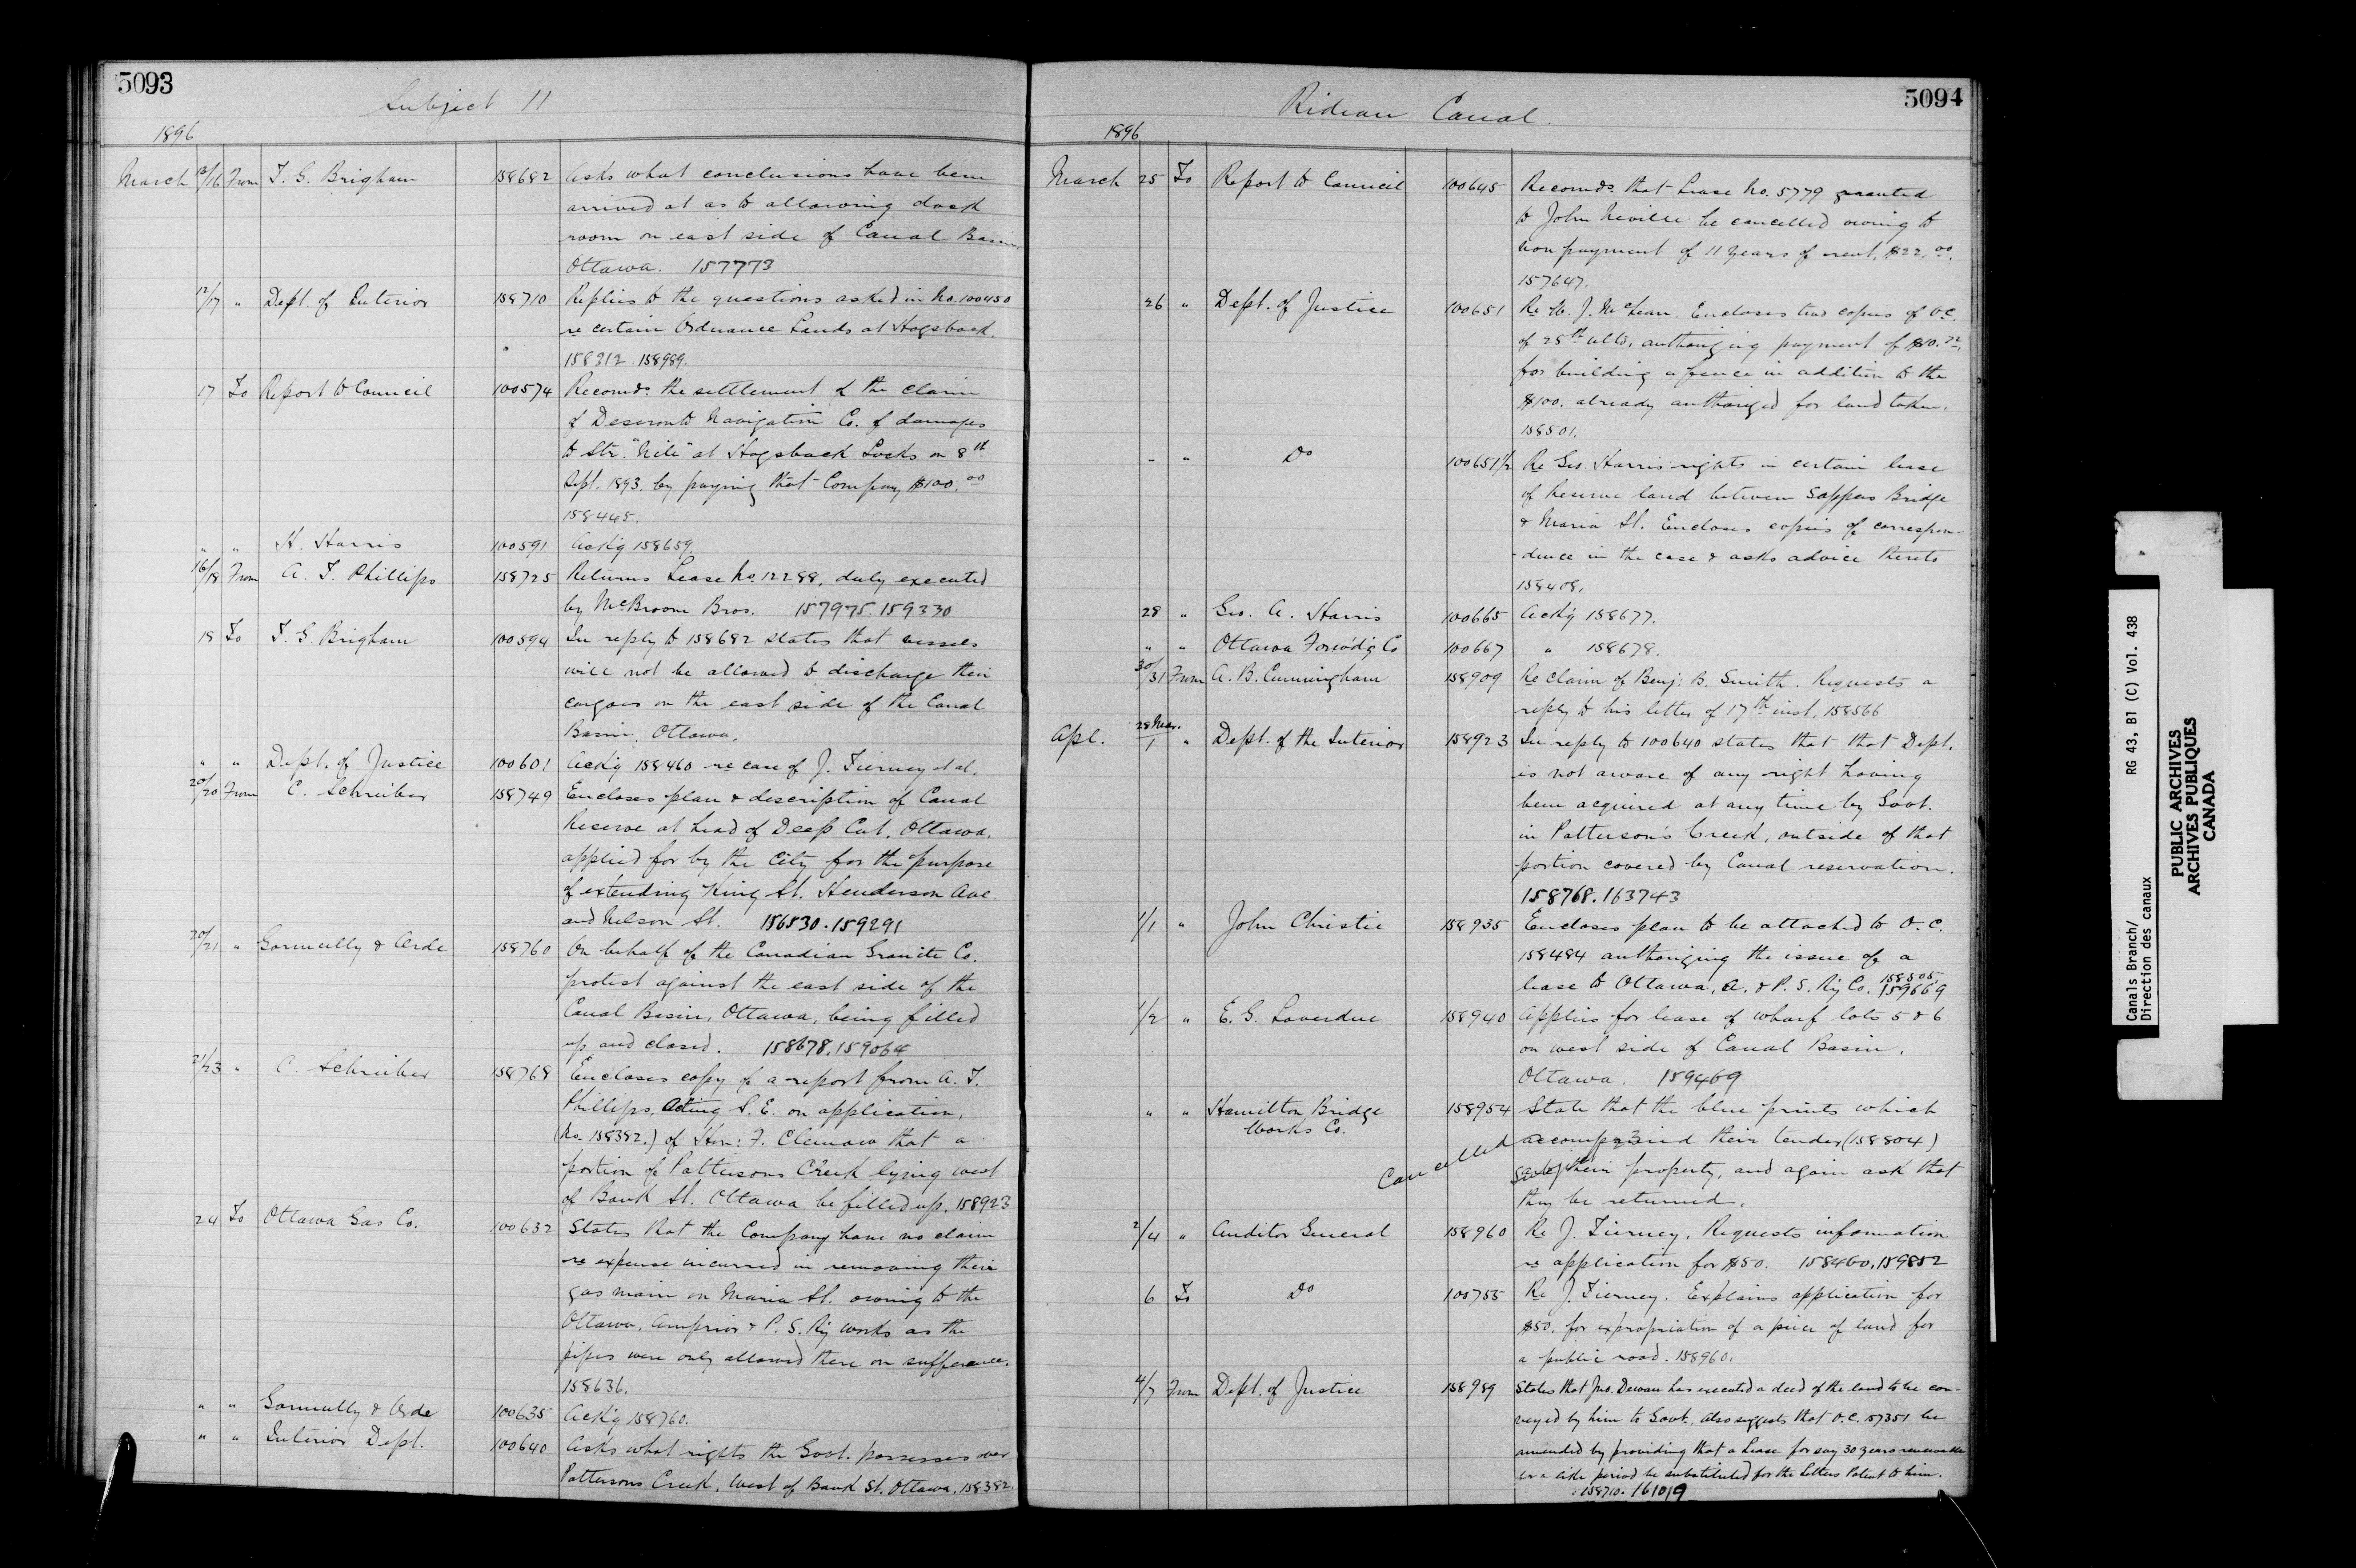 5093
Subject 11
1896
March 13/16 From T. G. Brigham 158682 Asks what conclusions have been
arrived at as to allowing dock
room on east side of Canal Basin
Ottawa. 157773
12/17 " Dept. of Interior 158710 Replies to the questions asked in No. 100450
re certain Ordnance Lands at Hogsback.
158312. 158989.
17 To Report to Council 100574 Recomds. the settlement of the claim
of Deseronto Navigation Co. of damages
to Str. "Nile" at Hogsback Locks on 8th
Sept. 1893. by paying that Company $100.00
158445.
" " H. Harris 100591 Ackg 158659.
16/18 From A. T. Phillips 158725 Returns Lease No. 12288, duly executed
by McBroom Bros. 157975. 159330
18 To T. G. Brigham 100594 In reply to 158682 states that vessels
will not be allowed to discharge their
cargoes on the east side of the Canal
Basin, Ottawa.
" " Dept. of Justice 100601 Ackg 158460 re case of J. Tierney et al.
20/20 From C. Schreiber 158749 Encloses plan & description of Canal
Reserve at head of Deep Cut, Ottawa,
applied for by the City for the purpose
of extending King St. Henderson Ave.
and Nelson St. 156530. 159291
20/21 " Gormully & Orde 158760 On behalf of the Canadian Granite Co.
protest against the east side of the
Canal Basin, Ottawa, being filled
up and closed. 158678. 159064
21/23 " C. Schreiber 158768 Encloses copy of a report from A. T.
Phillips, Acting S. E. on application,
(No. 158382.) of Hon: F. Clemow that a
portion of Pattersons Creek lying west
of Bank St. Ottawa be filled up. 158923
24 To Ottawa Gas Co. 100632 States that the Company have no claim
re expense incurred in removing their
gas main on Maria St. owing to the
Ottawa, Arnprior & P. S. Ry works as the
pipes were only allowed there on sufferance.
158636.
" " Gormully & Orde 100635 Ackg 158760.
" " Interior Dept. 100640 Asks what rights the Govt. possesses over
Pattersons Creek, West of Bank St. Ottawa. 158382.
5094
Rideau Canal.
1896
March 25 To Report to Council 100645 Recomds. that Lease No. 5779 granted
to John Neville be cancelled owing to
non payment of 11 years of rent, $22.00.
157647.
26 " Dept. of Justice 100651 Re J. McLean. Encloses two copies of O.C.
of 25th ulto, authorizing payment of $10.72,
for building a fence in addition to the
$100. already authorized for land taken.
158501.
" " Do 100651½ Re Geo. Harris rights in certain lease
of Reserve land between Sappers Bridge
& Maria St. Encloses copies of correspon-
-dence in the case & asks advice thereto
158408.
28 " Geo. A. Harris 100665 Ackg 158677.
" " Ottawa Forwd'g Co 100667 " 158678.
30/31 From A. B. Cunningham 158909 Re claim of Benj: B. Smith. Requests a
reply to his letter of 17th inst. 158566
Apl. 28 Mar./1 " Dept. of the Interior 158923 In reply to 100640 states that that Dept.
is not aware of any right having
been acquired at any time by Govt.
in Patterson's Creek, outside of that
portion covered by Canal reservation.
158768. 163743
1/1 " John Christie 158935 Encloses plan to be attached to O.C.
158484 authorizing the issue of a
lease to Ottawa, A. & P. S. Ry Co. 158505. 159669
1/2 " E. G. Laverdue 158940 Applies for lease of wharf lots 5 & 6
on west side of Canal Basin,
Ottawa. 159469
" " Hamilton Bridge Works Co. 158954 State that the blue prints which
Cancelled accompanied their tender (158804)
their property, and again ask that
they be returned.
2/4 " Auditor General 158960 Re J. Tierney. Requests information
re application for $50. 158460. 159852
6 To Do 100755 Re J. Tierney. Explains application for
$50. for expropriation of a piece of land for
a public road. 158960.
4/7 From Dept. of Justice 158989 States that Jno. Dewan has executed a deed of the land to be con-
veyed by him to Govt. Also suggests that O.C. 157351 be
amended by providing that a Lease for say 30 years renewable
for a like period be substituted for the Letters Patent to him.
158710. 161019
Canals Branch/
Direction des canaux
RG 43, B1 (C) Vol. 438
PUBLIC ARCHIVES
ARCHIVES PUBLIQUES
CANADA